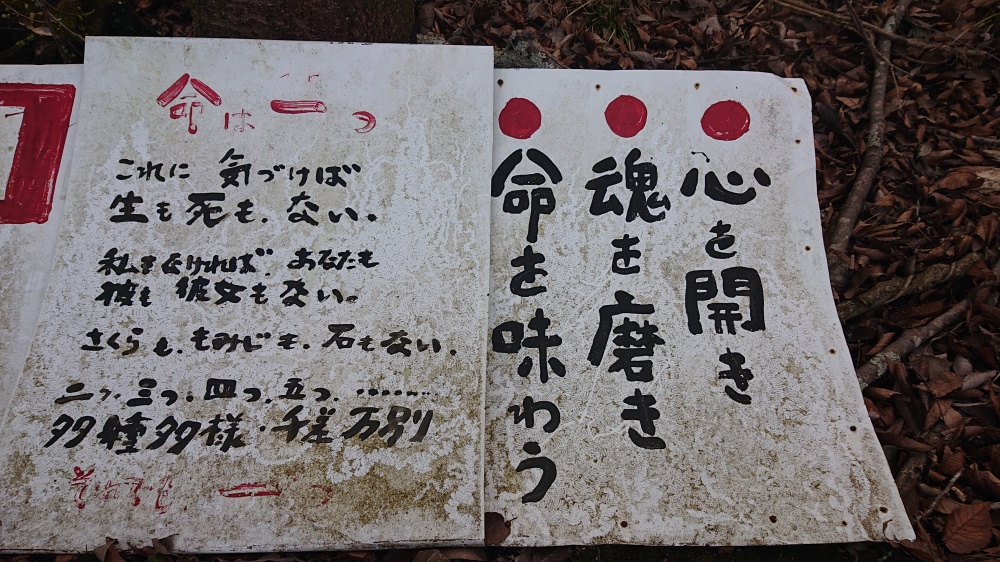 命は一つ
これに 気づけば
生も 死も、ない。
私もなければ、あなたも
彼も 彼女もない。
さくらも、もみじも、石もない。
二つ、三つ、四つ、五つ、………
多種多様・千差万別
それでも 一つ
心を開き
魂を磨き
命を味わう